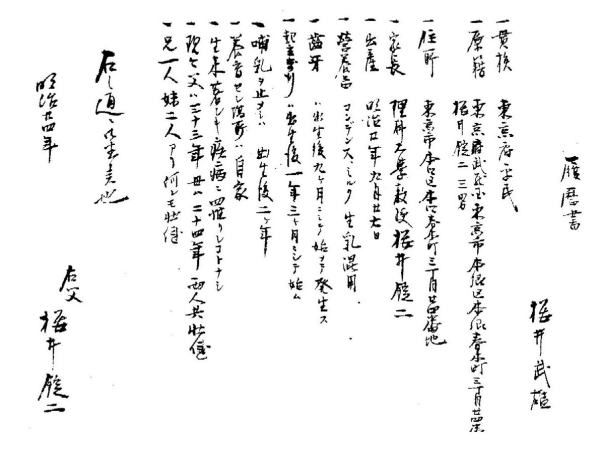 履歴書
桜井武雄
一貫族 東京府平民
一原籍 東京府武蔵国東京市本郷区本郷春木町三丁目廿四番
桜井錠二 三男
一住所 東京市本郷区本郷春木町三丁目廿四番地
一家長 理科大学教授 桜井錠二
一出産 明治廿年九月廿七日
一営養品 コンデンスミルク 生乳混用
一歯牙 ハ出生後九ヶ月ニシテ始メテ発生ス
一起立歩行ハ出生後一年三ヶ月ニシテ始ム
一哺乳ヲ止メシハ 出生後二ヶ年
一養育セシ場所ハ自家
一生来著シキ疾病ニ罹リシコトナシ
一現今父ハ三十三年母ハ二十四年両人共壮健
一兄一人妹二人アリ何レモ壮健
右之通
明治廿四年
右父
桜井錠二